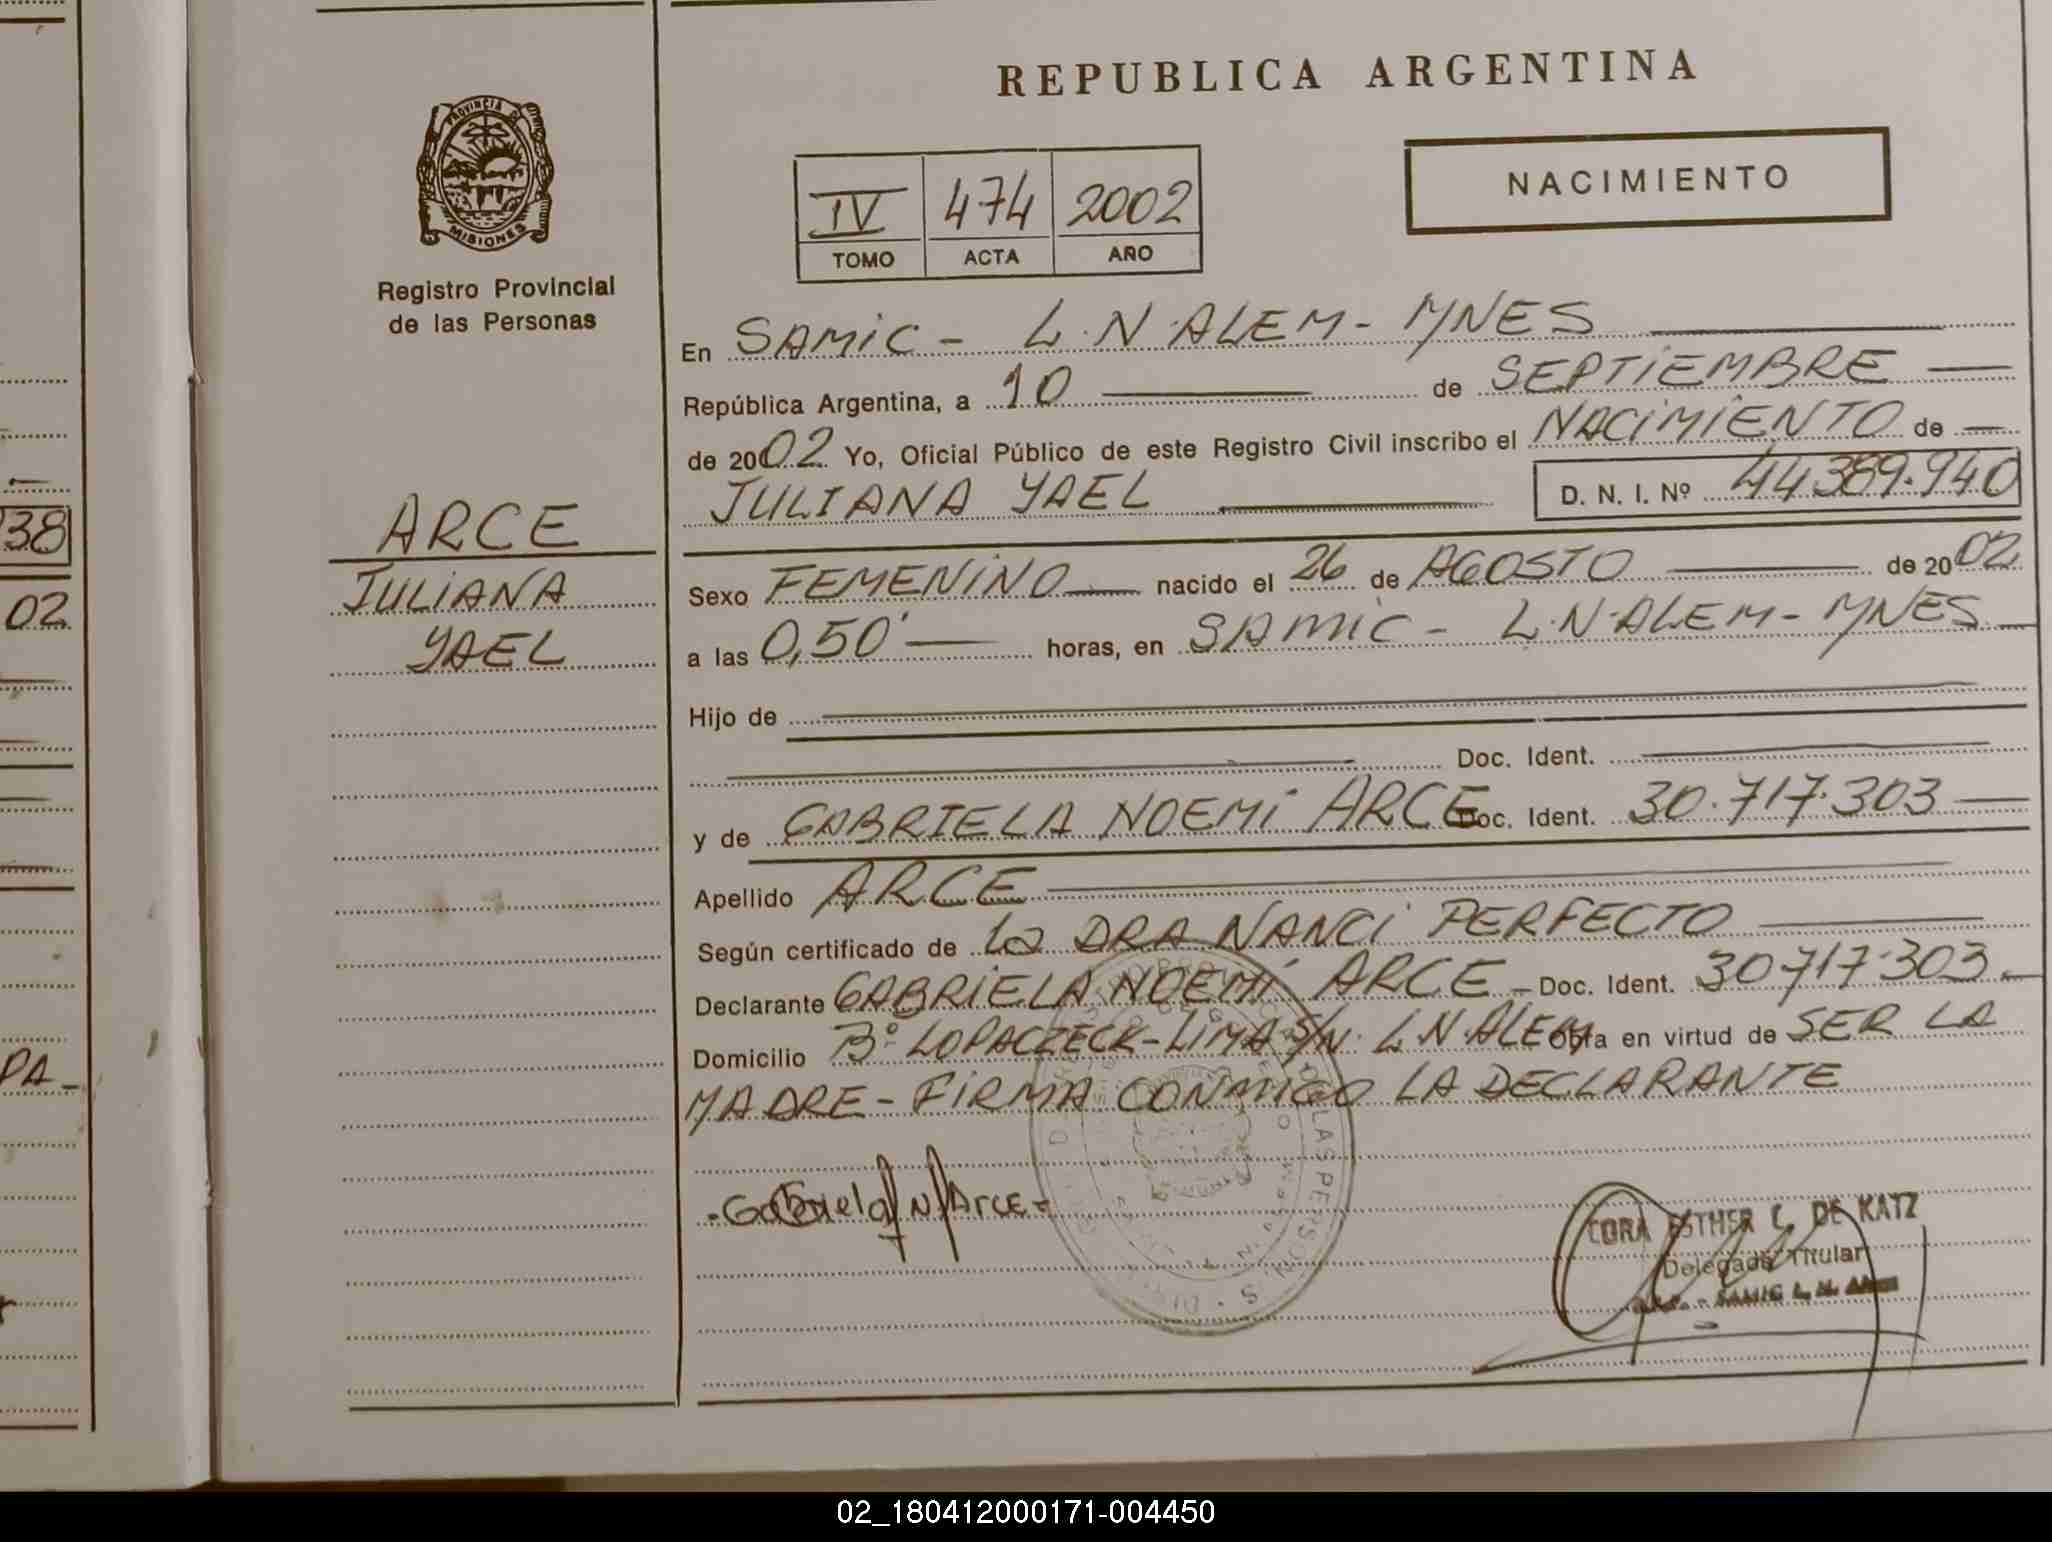 REPUBLICA ARGENTINA
PROVINCIA DE
MISIONES
Registro Provincial
de las Personas
IV 474 2002
TOMO ACTA AÑO
NACIMIENTO
En SAMIC - L.N.ALEM - MNES
República Argentina, a 10 de SEPTIEMBRE
de 2002 Yo, Oficial Público de este Registro Civil inscribo el NACIMIENTO de
JULIANA YAEL D. N. I. Nº 44.389.940
ARCE
JULIANA
YAEL
Sexo FEMENINO nacido el 26 de AGOSTO de 2002
a las 0,50' horas, en SAMIC - L.N.ALEM - MNES
Hijo de
Doc. Ident.
y de GABRIELA NOEMI ARCE Doc. Ident. 30.717.303
Apellido ARCE
Según certificado de La DRA NANCI PERFECTO
Declarante GABRIELA NOEMI ARCE - Doc. Ident. 30.717.303
Domicilio Bº LOPACZECK - LIMA S/N. L.N.ALEM Obra en virtud de SER LA
MADRE - FIRMA CONMIGO LA DECLARANTE
Gabriela N Arce
CORA ESTHER C. DE KATZ
Delegada Titular
SAMIC L. N. Alem
38
02
PA
02_180412000171-004450